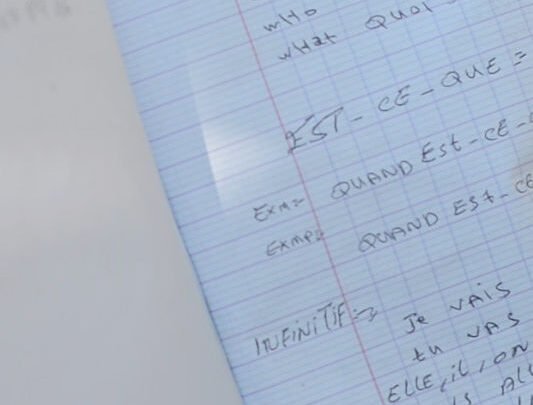 WHO
WHAT QUOI
EST-CE-QUE =
EXM= QUAND ESt-CE-
EXMP= QUAND ESt-CE
INFINITIF:→ Je VAIS
tu VAS
ELLE, iL, ON